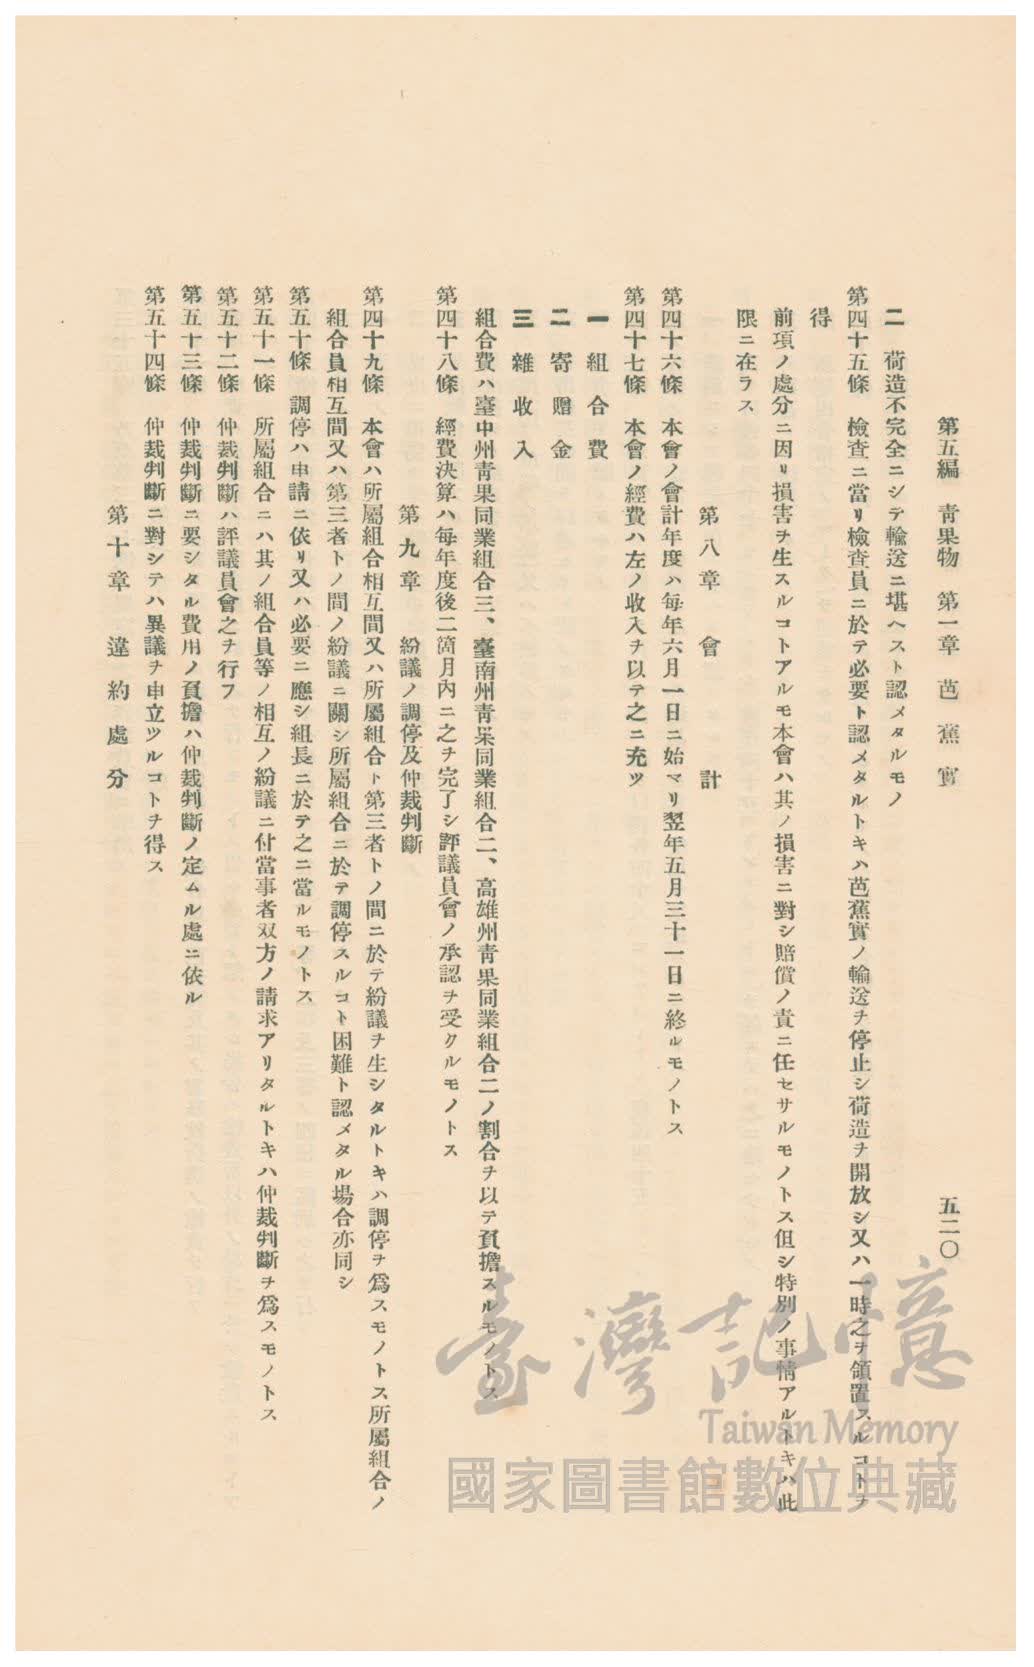 第五編 靑果物 第一章 芭蕉實 五二〇
二 荷造不完全ニシテ輸送ニ堪ヘスト認メタルモノ
第四十五條 檢查ニ當リ檢查員ニ於テ必要ト認メタルトキハ芭蕉實ノ輸送ヲ停止シ荷造ヲ開放シ又ハ一時之ヲ領置スルコトヲ
得
前項ノ處分ニ因リ損害ヲ生スルコトアルモ本會ハ其ノ損害ニ對シ賠償ノ責ニ任セサルモノトス但シ特別ノ事情アルトキハ此
限ニ在ラス
第八章 會計
第四十六條 本會ノ會計年度ハ每年六月一日ニ始マリ翌年五月三十一日ニ終ルモノトス
第四十七條 本會ノ經費ハ左ノ收入ヲ以テ之ニ充ツ
一 組合費
二 寄贈金
三 雜收入
組合費ハ臺中州靑果同業組合三、臺南州靑果同業組合二、高雄州靑果同業組合二ノ割合ヲ以テ負擔スルモノトス
第四十八條 經費決算ハ每年度後二箇月內ニ之ヲ完了シ評議員會ノ承認ヲ受クルモノトス
第九章 紛議ノ調停及仲裁判斷
第四十九條 本會ハ所屬組合相互間又ハ所屬組合ト第三者トノ間ニ於テ紛議ヲ生シタルトキハ調停ヲ爲スモノトス所屬組合ノ
組合員相互間又ハ第三者トノ間ノ紛議ニ關シ所屬組合ニ於テ調停スルコト困難ト認メタル場合亦同シ
第五十條 調停ハ申請ニ依リ又ハ必要ニ應シ組長ニ於テ之ニ當ルモノトス
第五十一條 所屬組合ニハ其ノ組合員等ノ相互ノ紛議ニ付當事者双方ノ請求アリタルトキハ仲裁判斷ヲ爲スモノトス
第五十二條 仲裁判斷ハ評議員會之ヲ行フ
第五十三條 仲裁判斷ニ要シタル費用ノ負擔ハ仲裁判斷ノ定ムル處ニ依ル
第五十四條 仲裁判斷ニ對シテハ異議ヲ申立ツルコトヲ得ス
第十章 違約處分
臺灣記憶
Taiwan Memory
國家圖書館數位典藏